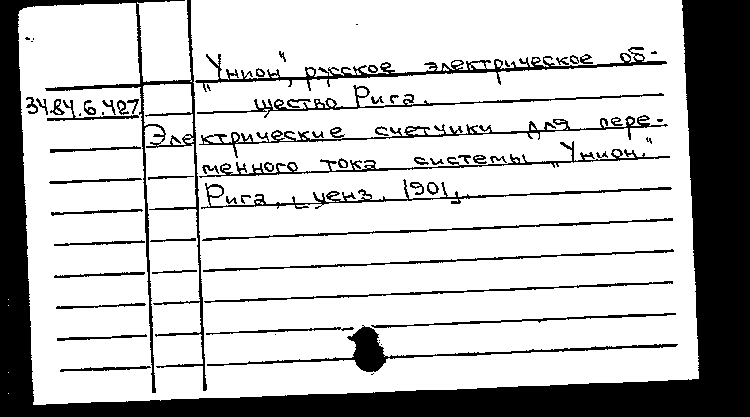 „Унион“, русское электрическое об-
34.84.6.427
щество Рига.
Электрические счетчики для пере-
менного тока системы „Унион.“
Рига, [ценз. 1901]